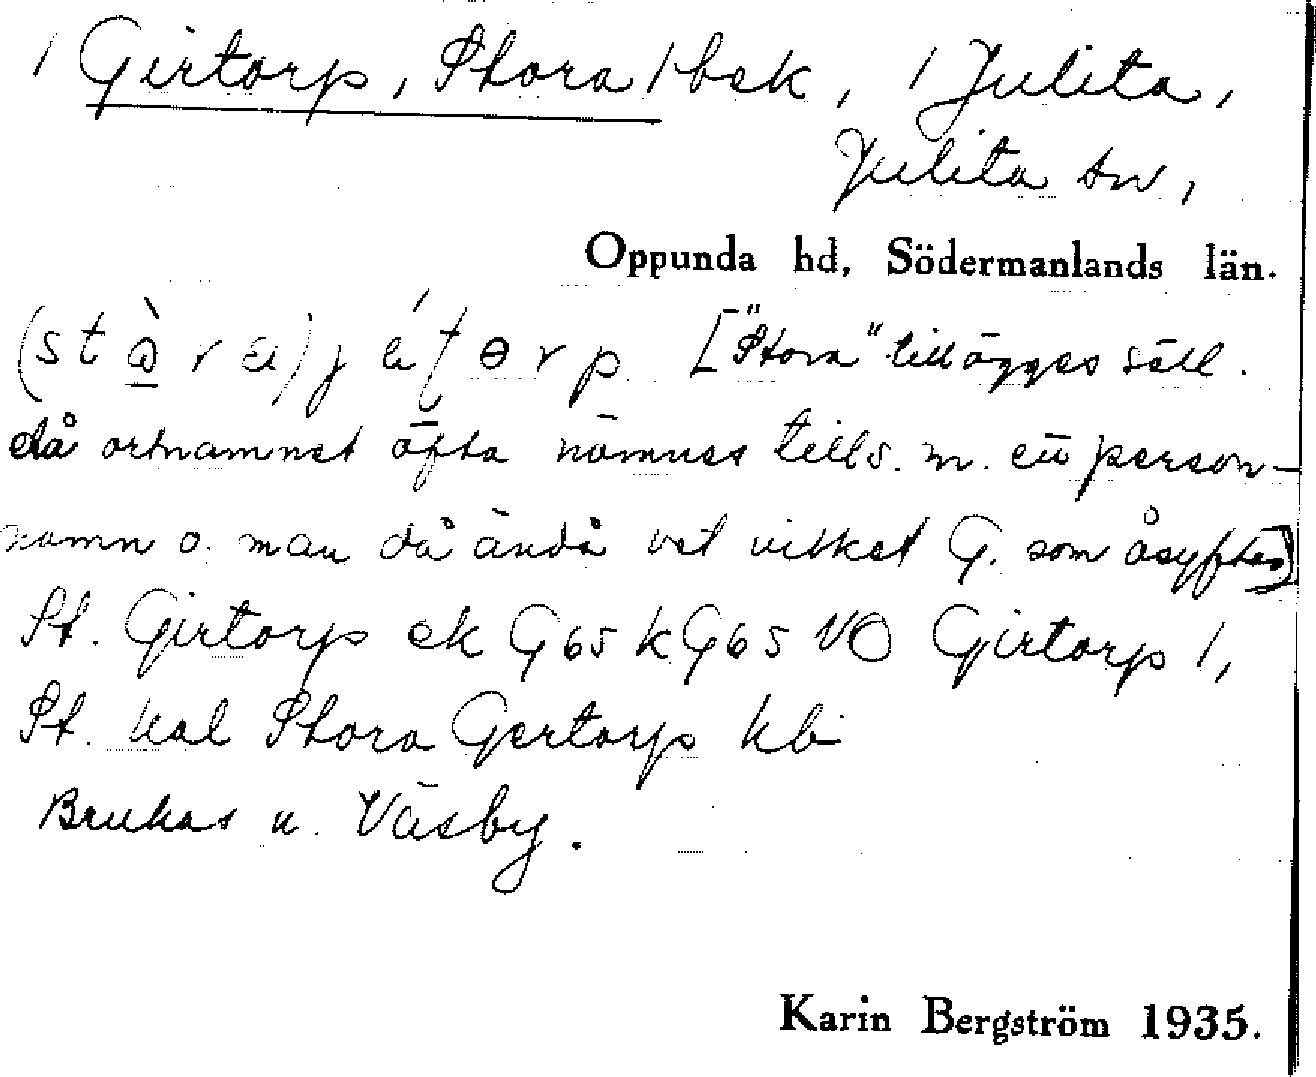 Girtorp, Stora 1 bsk, 1 Julita,
Julita sn,
Oppunda hd, Södermanlands län.
["Stora" tillägges säll.
då ortnamnet ofta nämnes tills. m. ett person-
namn o. man då ändå vet vilket G. som åsyftes]
St. Girtorp ek G65 k G65 NO Girtorp 1,
St. kal Stora Gertorp kb
Brukas u. Väsby.
Karin Bergström 1935.